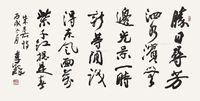 勝日尋芳
泗水濱無
邊光景一時
新等閑識
得東風面萬
紫千紅總是春
朱熹詩
李鐸